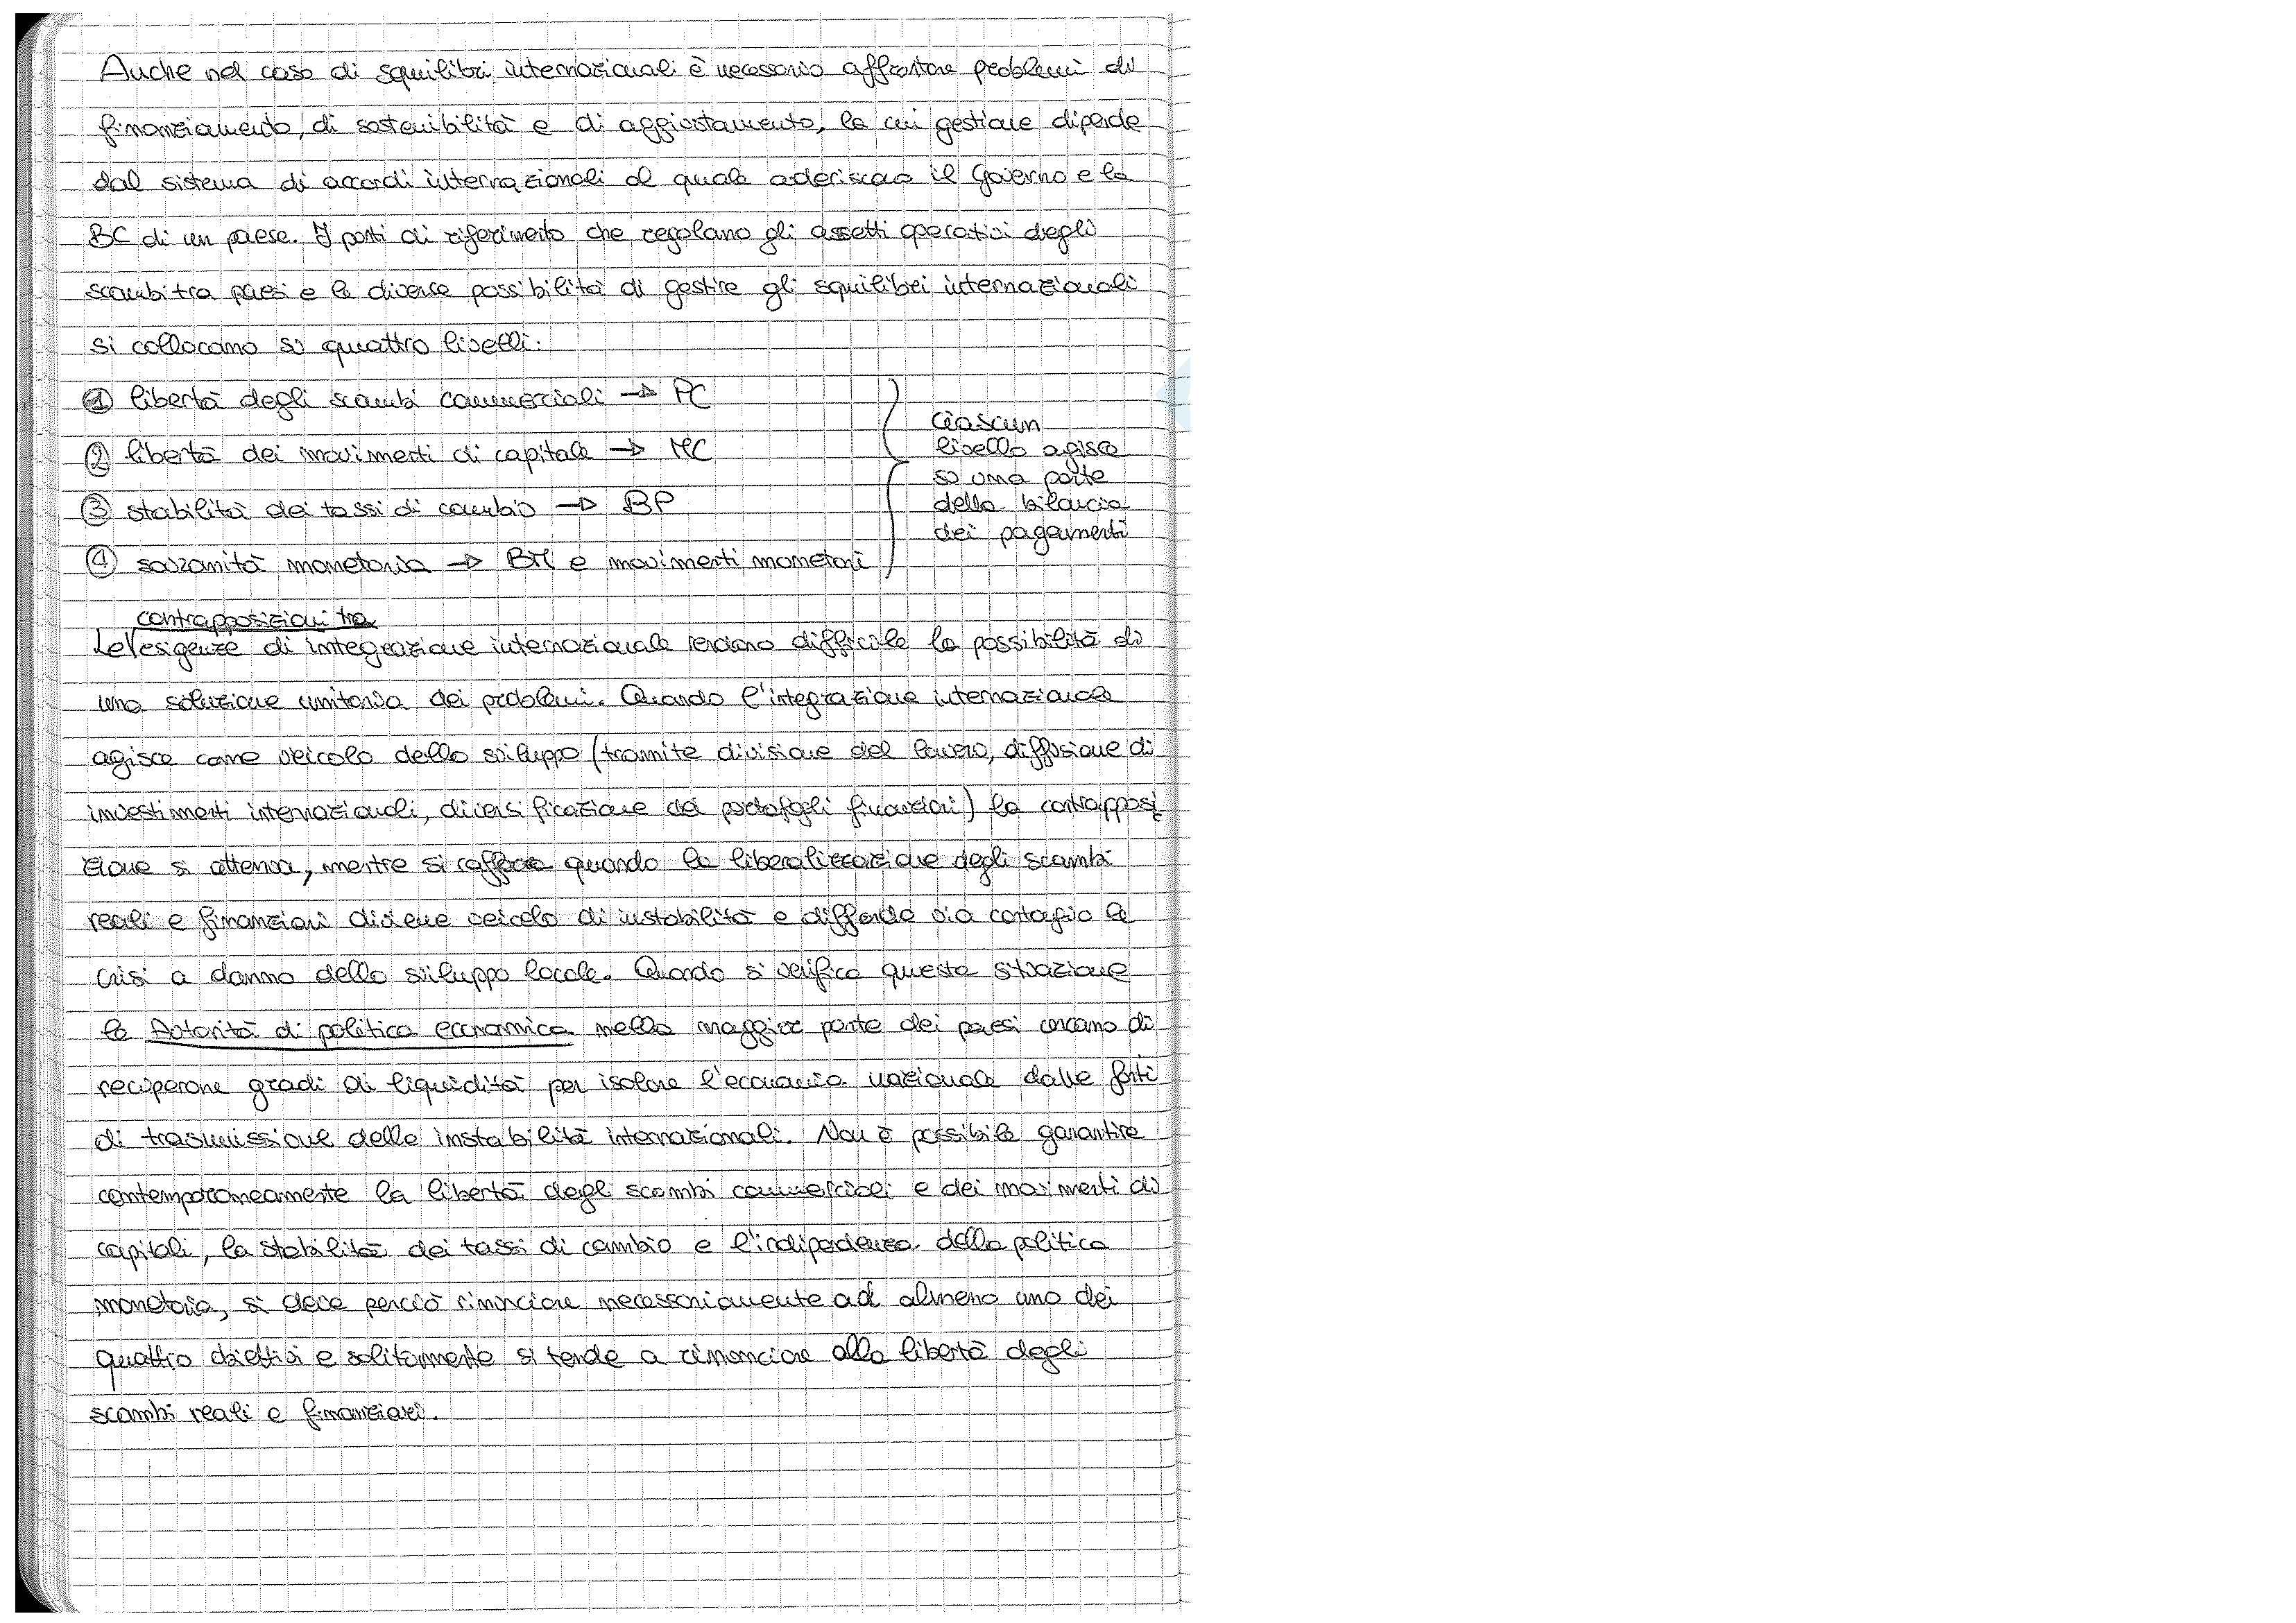 Anche nel caso di squilibri internazionali è necessario affrontare problemi di
finanziamento, di sostenibilità e di aggiustamento, la cui gestione dipende
dal sistema di accordi internazionali al quale aderiscono il Governo e la
BC di un paese. I punti di riferimento che regolano gli assetti operativi degli
scambi tra paesi e le diverse possibilità di gestire gli squilibri internazionali
si collocano su quattro livelli:
① libertà degli scambi commerciali → PC
② libertà dei movimenti di capitale → MC
③ stabilità dei tassi di cambio → BP
④ sovranità monetaria → BM e movimenti monetari
ciascun
livello agisce
su una parte
della bilancia
dei pagamenti
contrapposizioni tra
Le esigenze di integrazione internazionale rendono difficile la possibilità di
una soluzione unitaria dei problemi. Quando l'integrazione internazionale
agisce come veicolo dello sviluppo (tramite divisione del lavoro, diffusione di
investimenti internazionali, diversificazione dei portafogli finanziari) la contrapposi
zione si attenua, mentre si rafforza quando la liberalizzazione degli scambi
reali e finanziari diviene veicolo di instabilità e diffonde via contagio le
crisi a danno dello sviluppo locale. Quando si verifica questa situazione
le Autorità di politica economica nella maggior parte dei paesi cercano di
recuperare gradi di liquidità per isolare l'economia nazionale dalle fonti
di trasmissione delle instabilità internazionali. Non è possibile garantire
contemporaneamente la libertà degli scambi commerciali e dei movimenti di
capitali, la stabilità dei tassi di cambio e l'indipendenza della politica
monetaria, si deve perciò rinunciare necessariamente ad almeno uno dei
quattro obiettivi e solitamente si tende a rinunciare alla libertà degli
scambi reali e finanziari.